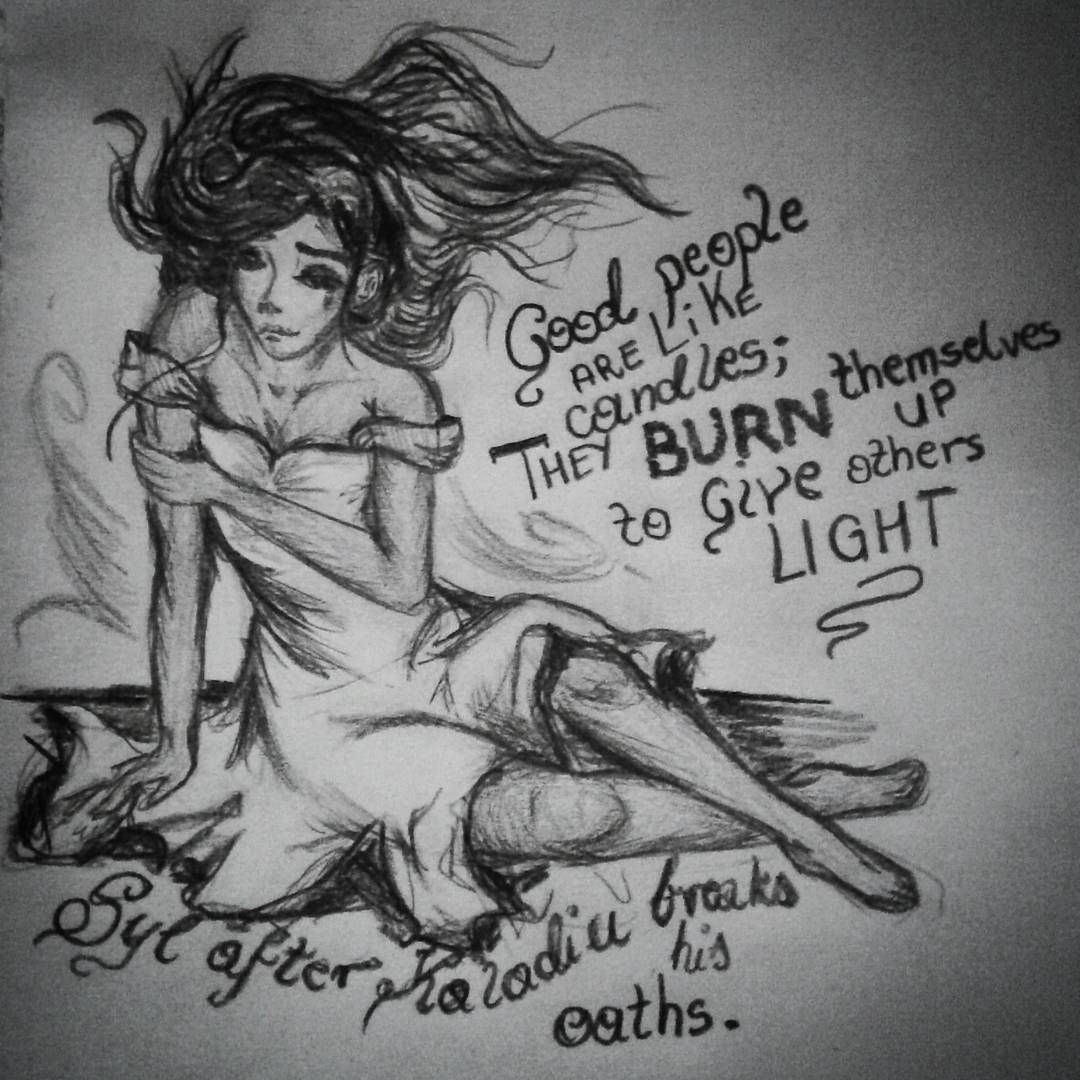 Good people
ARE LiKE
candles;
THEY BURN themselves
UP
to Give others
LIGHT
Syl after Kaladin breaks
his
oaths.